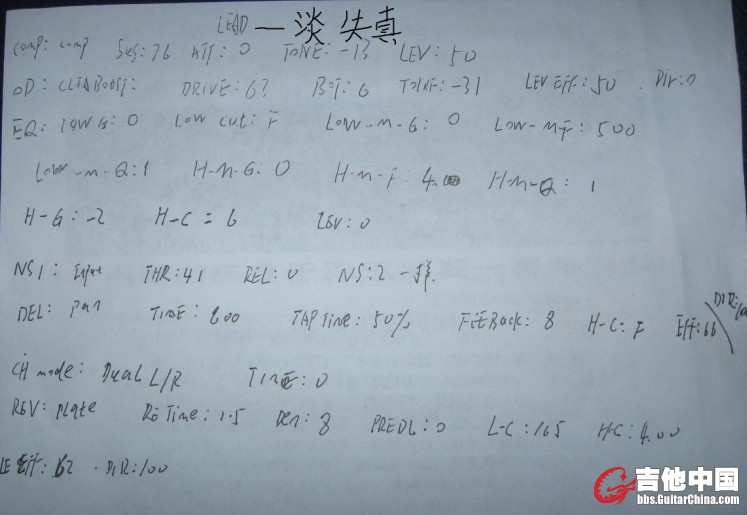 LEAD — 淡失真
Comp: comp Sus: 76 ATT: 0 TONE: -13 LEV: 50
OD: CLEABOOST: DRIVE: 63 BOT: 6 TONE: -31 LEV Eff: 50 . Dir: 0
EQ: LOW G: 0 Low cut: F Low-m-G: 0 Low-mF: 500
Low-m-Q: 1 H-M-G: 0 H-m-F: 4.00 H-m-Q: 1
H-G: -2 H-C = 6 LEV: 0
NS1: Input THR: 41 REL: 0 NS: 2 一样.
DEL: Pan TIME: 800 TAP Time: 50% FEEBack: 8 H-C: F Eff: 66 DIR:
CH mode: Dual L/R TIME: 0
REV: Plate Re Time: 1.5 Den: 8 PREDL: 0 L-C: 165 H-C: 4.00
LE Eff: 62 . DIR: 100
吉他中国
bbs.GuitarChina.com